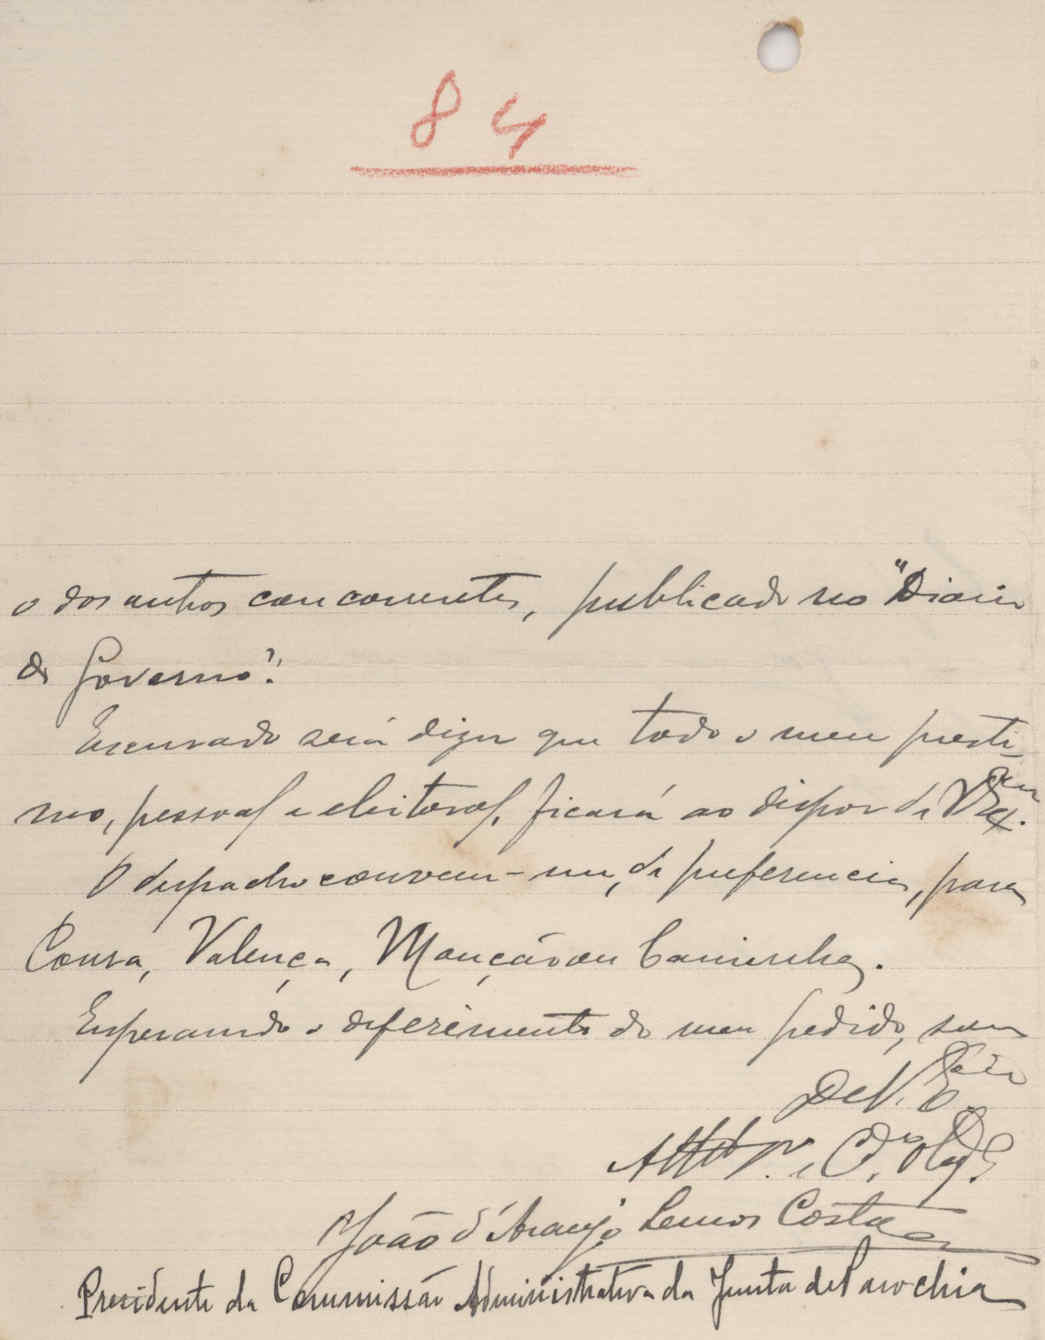 84
o dos outros concorrentes, publicado no "Diario
do Governo".
Escusado será dizer que todo o meu presti-
mo, pessoal e eleitoral, ficará ao dispor de V. Ex.
O despacho convem-me, de preferencia, para
Coura, Valença, Monção ou Caminha.
Esperando o deferimento do meu pedido, sou
De V. Ex.cia
Att.º V.or e Cr.º Obg.
João d'Araujo Lemos Costa
Presidente da Commissão Administrativa da Junta de Parochia